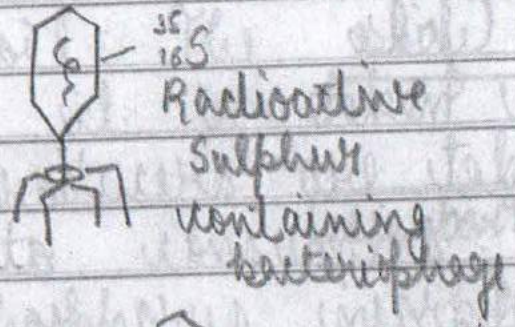 35
16S
Radioactive
Sulphur
containing
bacteriophage